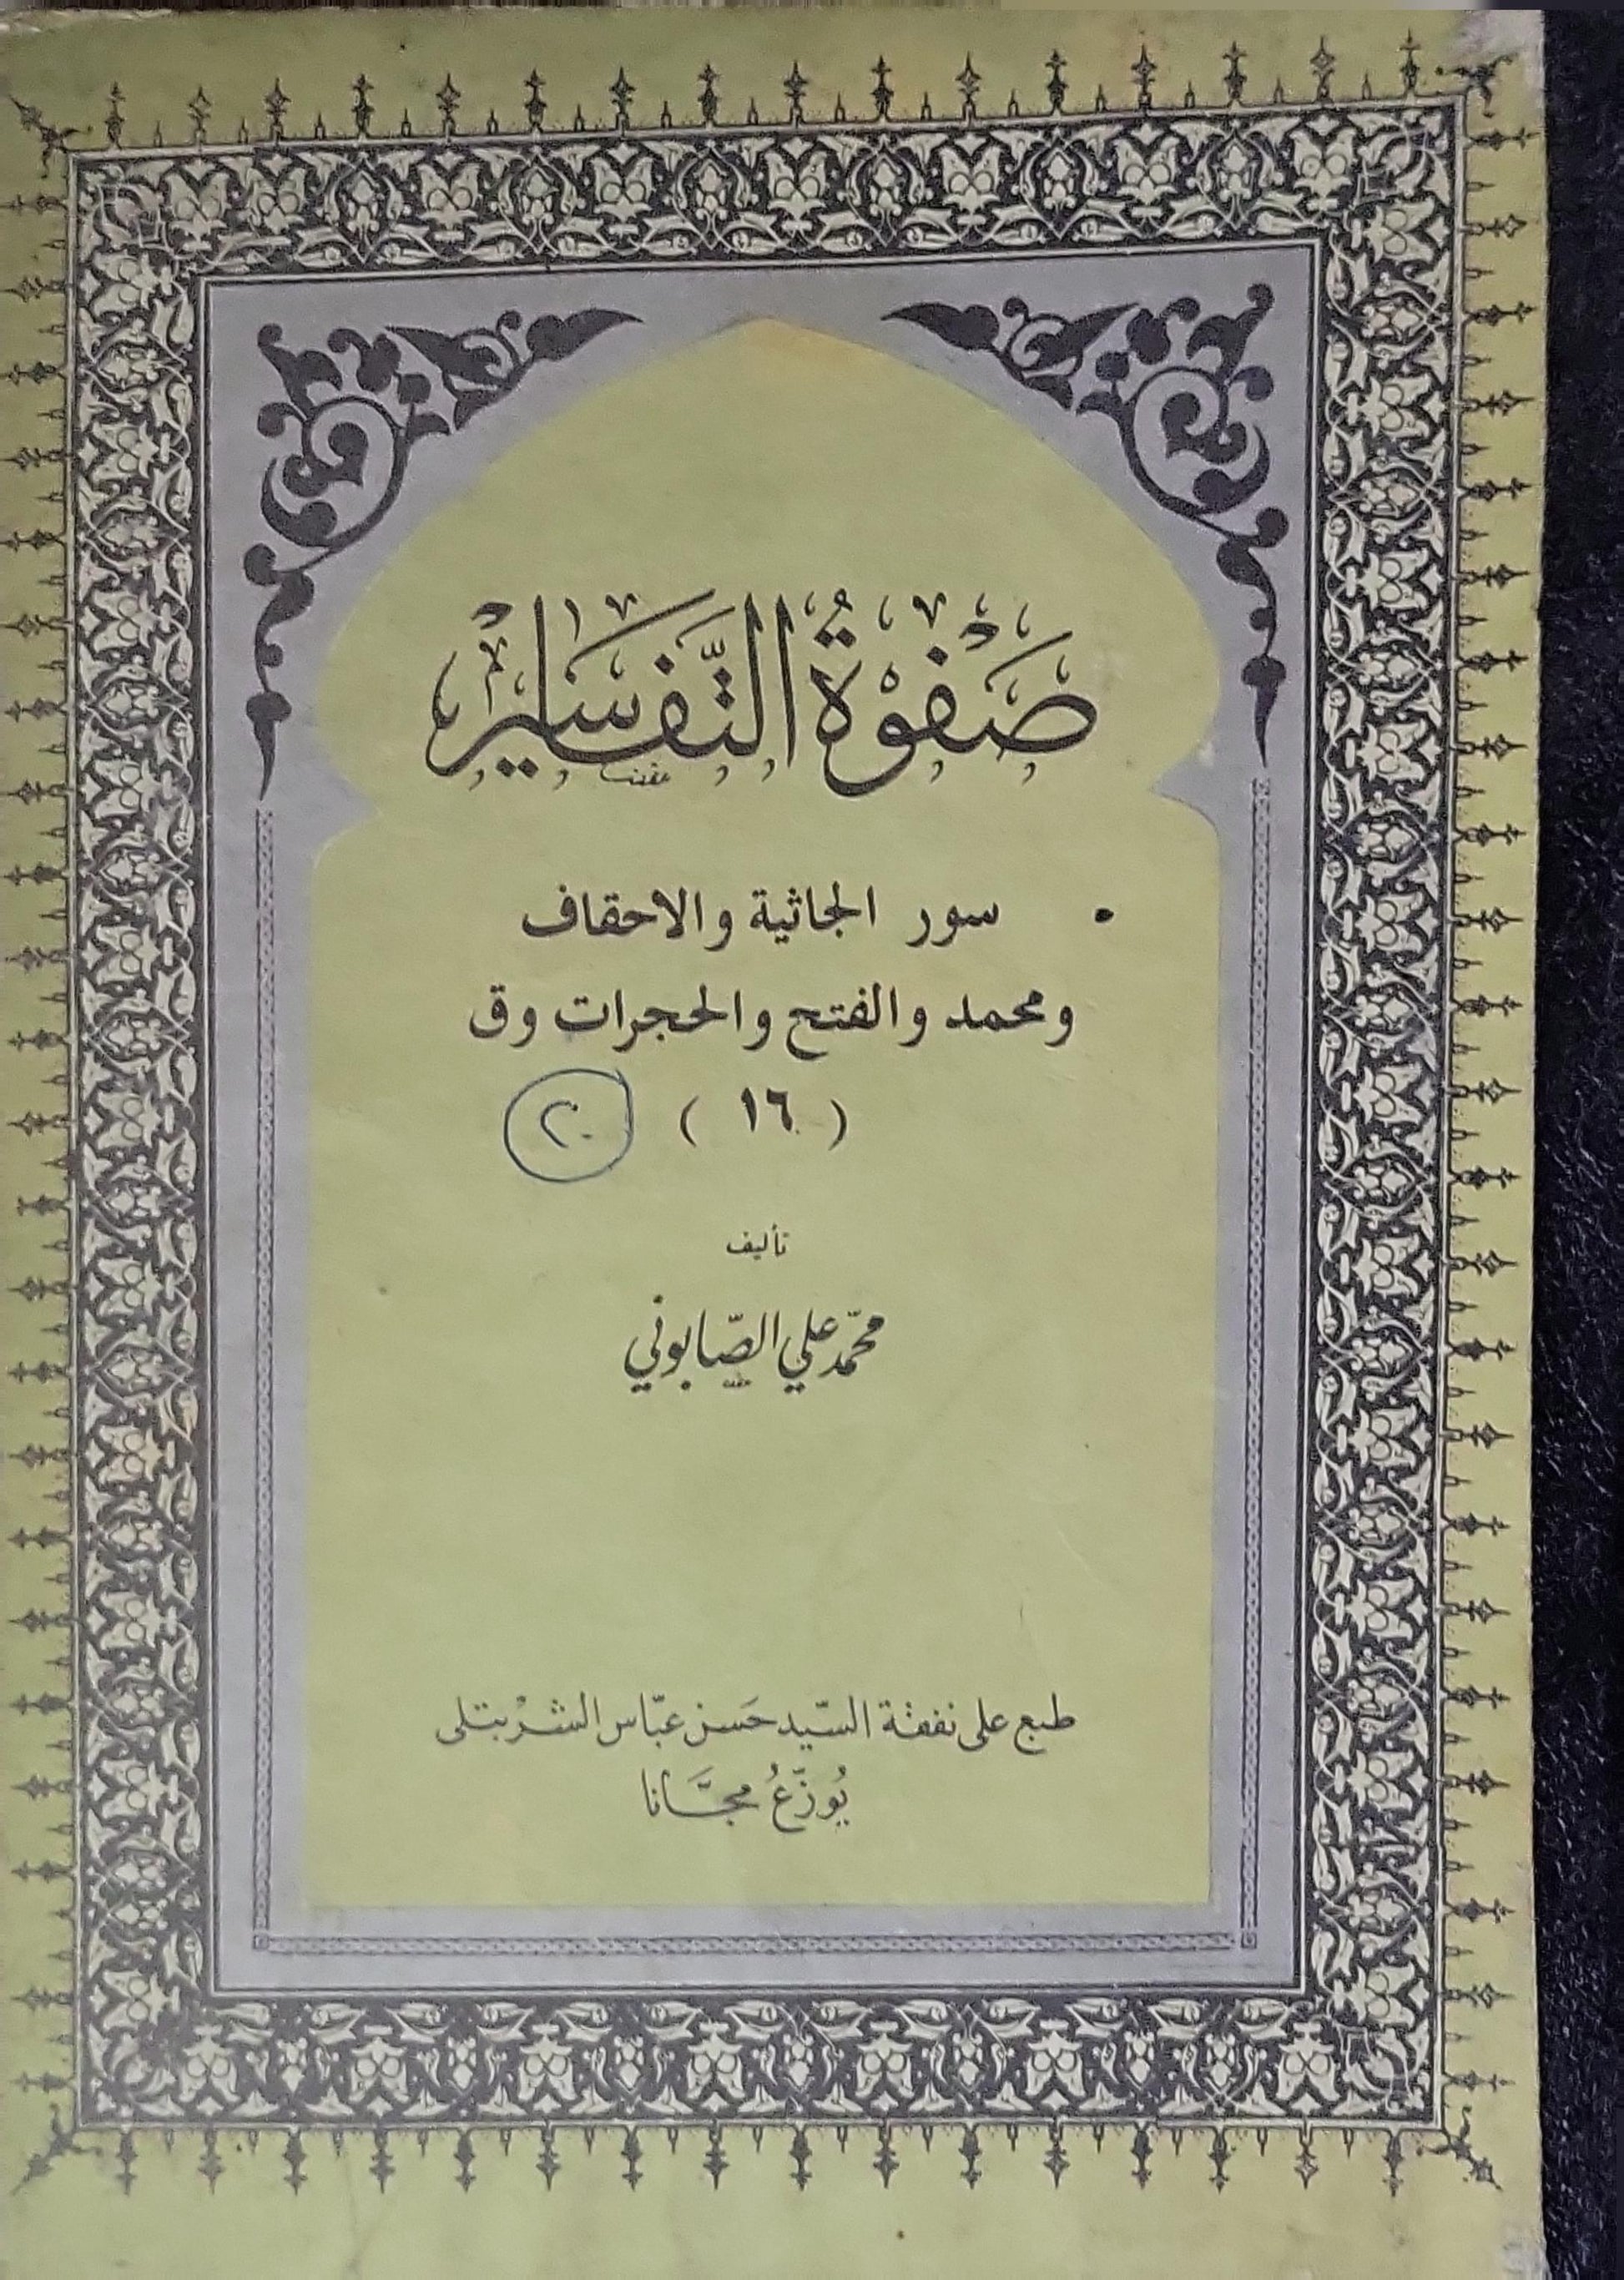 صَفْوَةُ التَّفَاسِير
سور الجاثية والاحقاف
ومحمد والفتح والحجرات وق
( ١٦ ) ٢٠
تأليف
محمّد علي الصّابوني
طبع على نفقة السّيد حَسَن عبّاس الشرْبتلى
يُوزّعُ مجَّانا